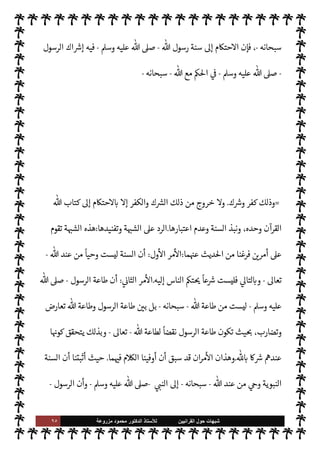 سبحانه -، فإن الاحتكام إلى سنة رسول الله - صلى الله عليه وسلم - فيه إشراك الرسول
- صلى الله عليه وسلم - في الحكم مع الله - سبحانه -
«وذلك كفر وشرك. ولا خروج من ذلك الشرك والكفر إلا بالاحتكام إلى كتاب الله
القرآن وحده، ونبذ السنة وعدم اعتبارها.الرد على الشبهة وتفنيدها:هذه الشبهة تقوم
على أمرين فرغنا من الحديث عنهما:الأمر الأول: أن السنة ليست وحياً من عند الله -
تعالى - وبالتالي فليست شرعاً يحتكم الناس إليه.الأمر الثاني: أن طاعة الرسول - صلى الله
عليه وسلم - ليست من طاعة الله - سبحانه - بل بين طاعة الرسول وطاعة الله تعارض
وتضارب، بحيث تكون طاعة الرسول نقضاً لطاعة الله - تعالى - وبذلك يتحقق كونها
عندهم شركا بالله.وهذان الأمران قد سبق أن أوفينا الكلام فيهما. حيث أثبتنا أن السنة
النبوية وحي من عند الله - سبحانه - إلى النبي -صلى الله عليه وسلم - وأن الرسول -
شبهات حول القرآنيين للأستاذ الدكتور محمود مزروعة ٩٥